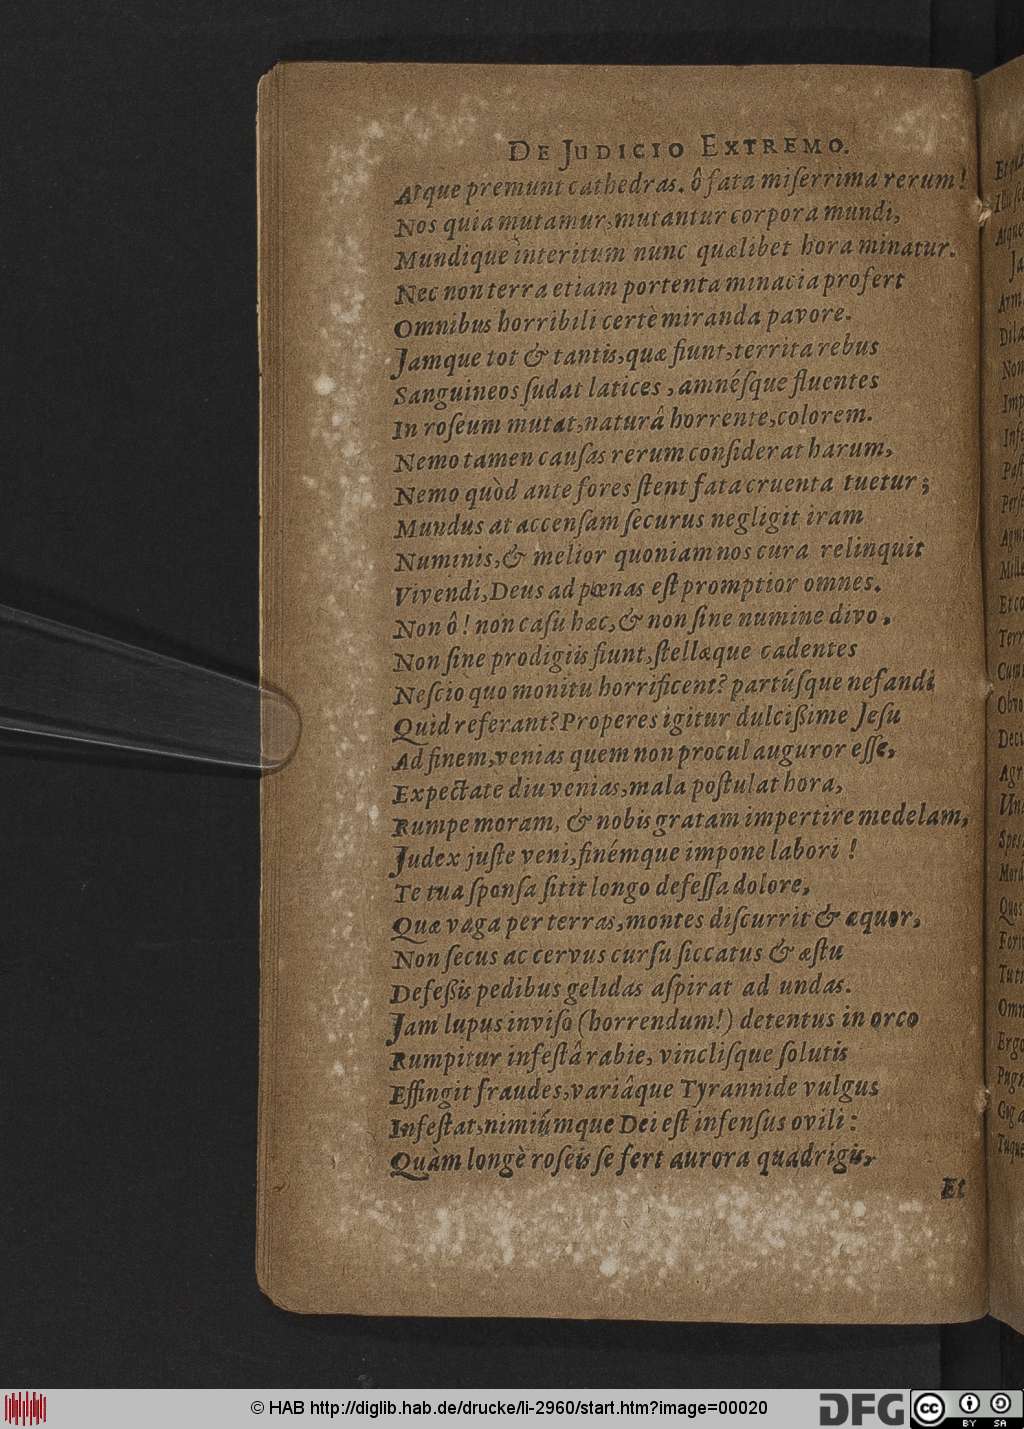 DE JUDICIO EXTREMO.
Atque premunt cathedras. ô fata miſerrima rerum!
Nos quia mutamur, mutantur corpora mundi,
Mundique interitum nunc quælibet hora minatur.
Nec non terra etiam portenta minacia profert
Omnibus horribili certè miranda pavore.
Jamque tot & tantis, quæ fiunt, territa rebus
Sanguineos ſudat latices, amnéſque fluentes
In roſeum mutat, naturâ horrente, colorem.
Nemo tamen cauſas rerum conſiderat harum,
Nemo quòd ante fores ſtent fata cruenta tuetur;
Mundus at accenſam ſecurus negligit iram
Numinis, & melior quoniam nos cura relinquit
Vivendi, Deus ad pœnas eſt promptior omnes.
Non ô! non caſu hæc, & non ſine numine divo,
Non ſine prodigiis fiunt, ſtellæque cadentes
Neſcio quo monitu horrificent? partúſque nefandi
Quid referant? Properes igitur dulciſſime Jeſu
Ad finem, venias quem non procul auguror eſſe,
Expectate diu venias, mala poſtulat hora,
Rumpe moram, & nobis gratam impertire medelam,
Judex juſte veni, finémque impone labori!
Te tua ſponſa ſitit longo defeſſa dolore,
Quæ vaga per terras, montes diſcurrit & æquor,
Non ſecus ac cervus curſu ſiccatus & æſtu
Defeßis pedibus gelidas aſpirat ad undas.
Jam lupus inviſo (horrendum!) detentus in orco
Rumpitur infeſtâ rabie, vincliſque ſolutis
Effingit fraudes, variâque Tyrannide vulgus
Infeſtat, nimiúmque Dei eſt infenſus ovili:
Quàm longè roſeis ſe fert aurora quadrigis,
Et
© HAB http://diglib.hab.de/drucke/li-2960/start.htm?image=00020
DFG
cc BY SA